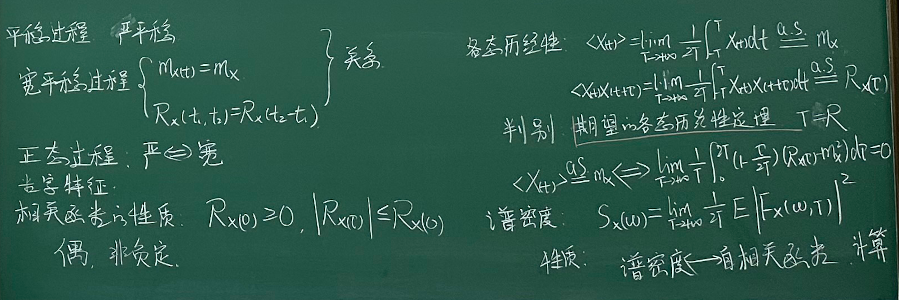 平稳过程 严平稳
宽平稳过程 { m_X(t)=m_X
R_X(t₁,t₂)=R_X(t₂-t₁) } 关系
正态过程: 严⇔宽
数字特征.
相关函数的性质. R_X(0)≥0, |R_X(τ)|≤R_X(0)
偶, 非负定.
各态历经性: <X(t)>=lim_{T→+∞} 1/2T ∫_{-T}^{T} X(t)dt =^{a.s.} m_X
<X(t)X(t+τ)>=lim_{T→+∞} 1/2T ∫_{-T}^{T} X(t)X(t+τ)dt =^{a.s} R_X(τ)
判别 期望的各态历经性定理 T=R
<X(t)> =^{a.s} m_X ⇔ lim_{T→+∞} 1/T ∫_0^{2T} (1-τ/2T)(R_X(τ)-m_X²)dτ=0
谱密度: S_X(ω)=lim_{T→+∞} 1/2T E|F_X(ω,T)|²
性质: 谱密度↔自相关函数 计算